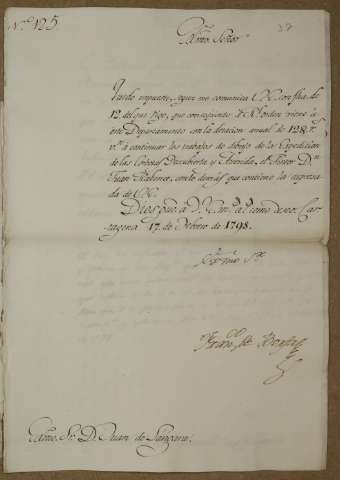 N.º 125.
37
Exmo. Señor
Quedo impuesto, segun me comunica V.E. con fha. de
12. del que rige, que consequente à Rl. orden viene à
este Departamento con la dotacion anual de 128. rs.
vn. à continuar los trabajos de dibujo de la Expedicion
de las Corbetas Descubierta y Atrevida, el Dn.
Juan, con lo demás que contiene la expresa-
da de V.E.
Dios gue. à V.E. ms. as. como deseo. Car-
tagena 17. de Febrero de 1798.
Exmo. Sr.
Franco. de Borja
Exmo. Sr. D. Juan de Langara.